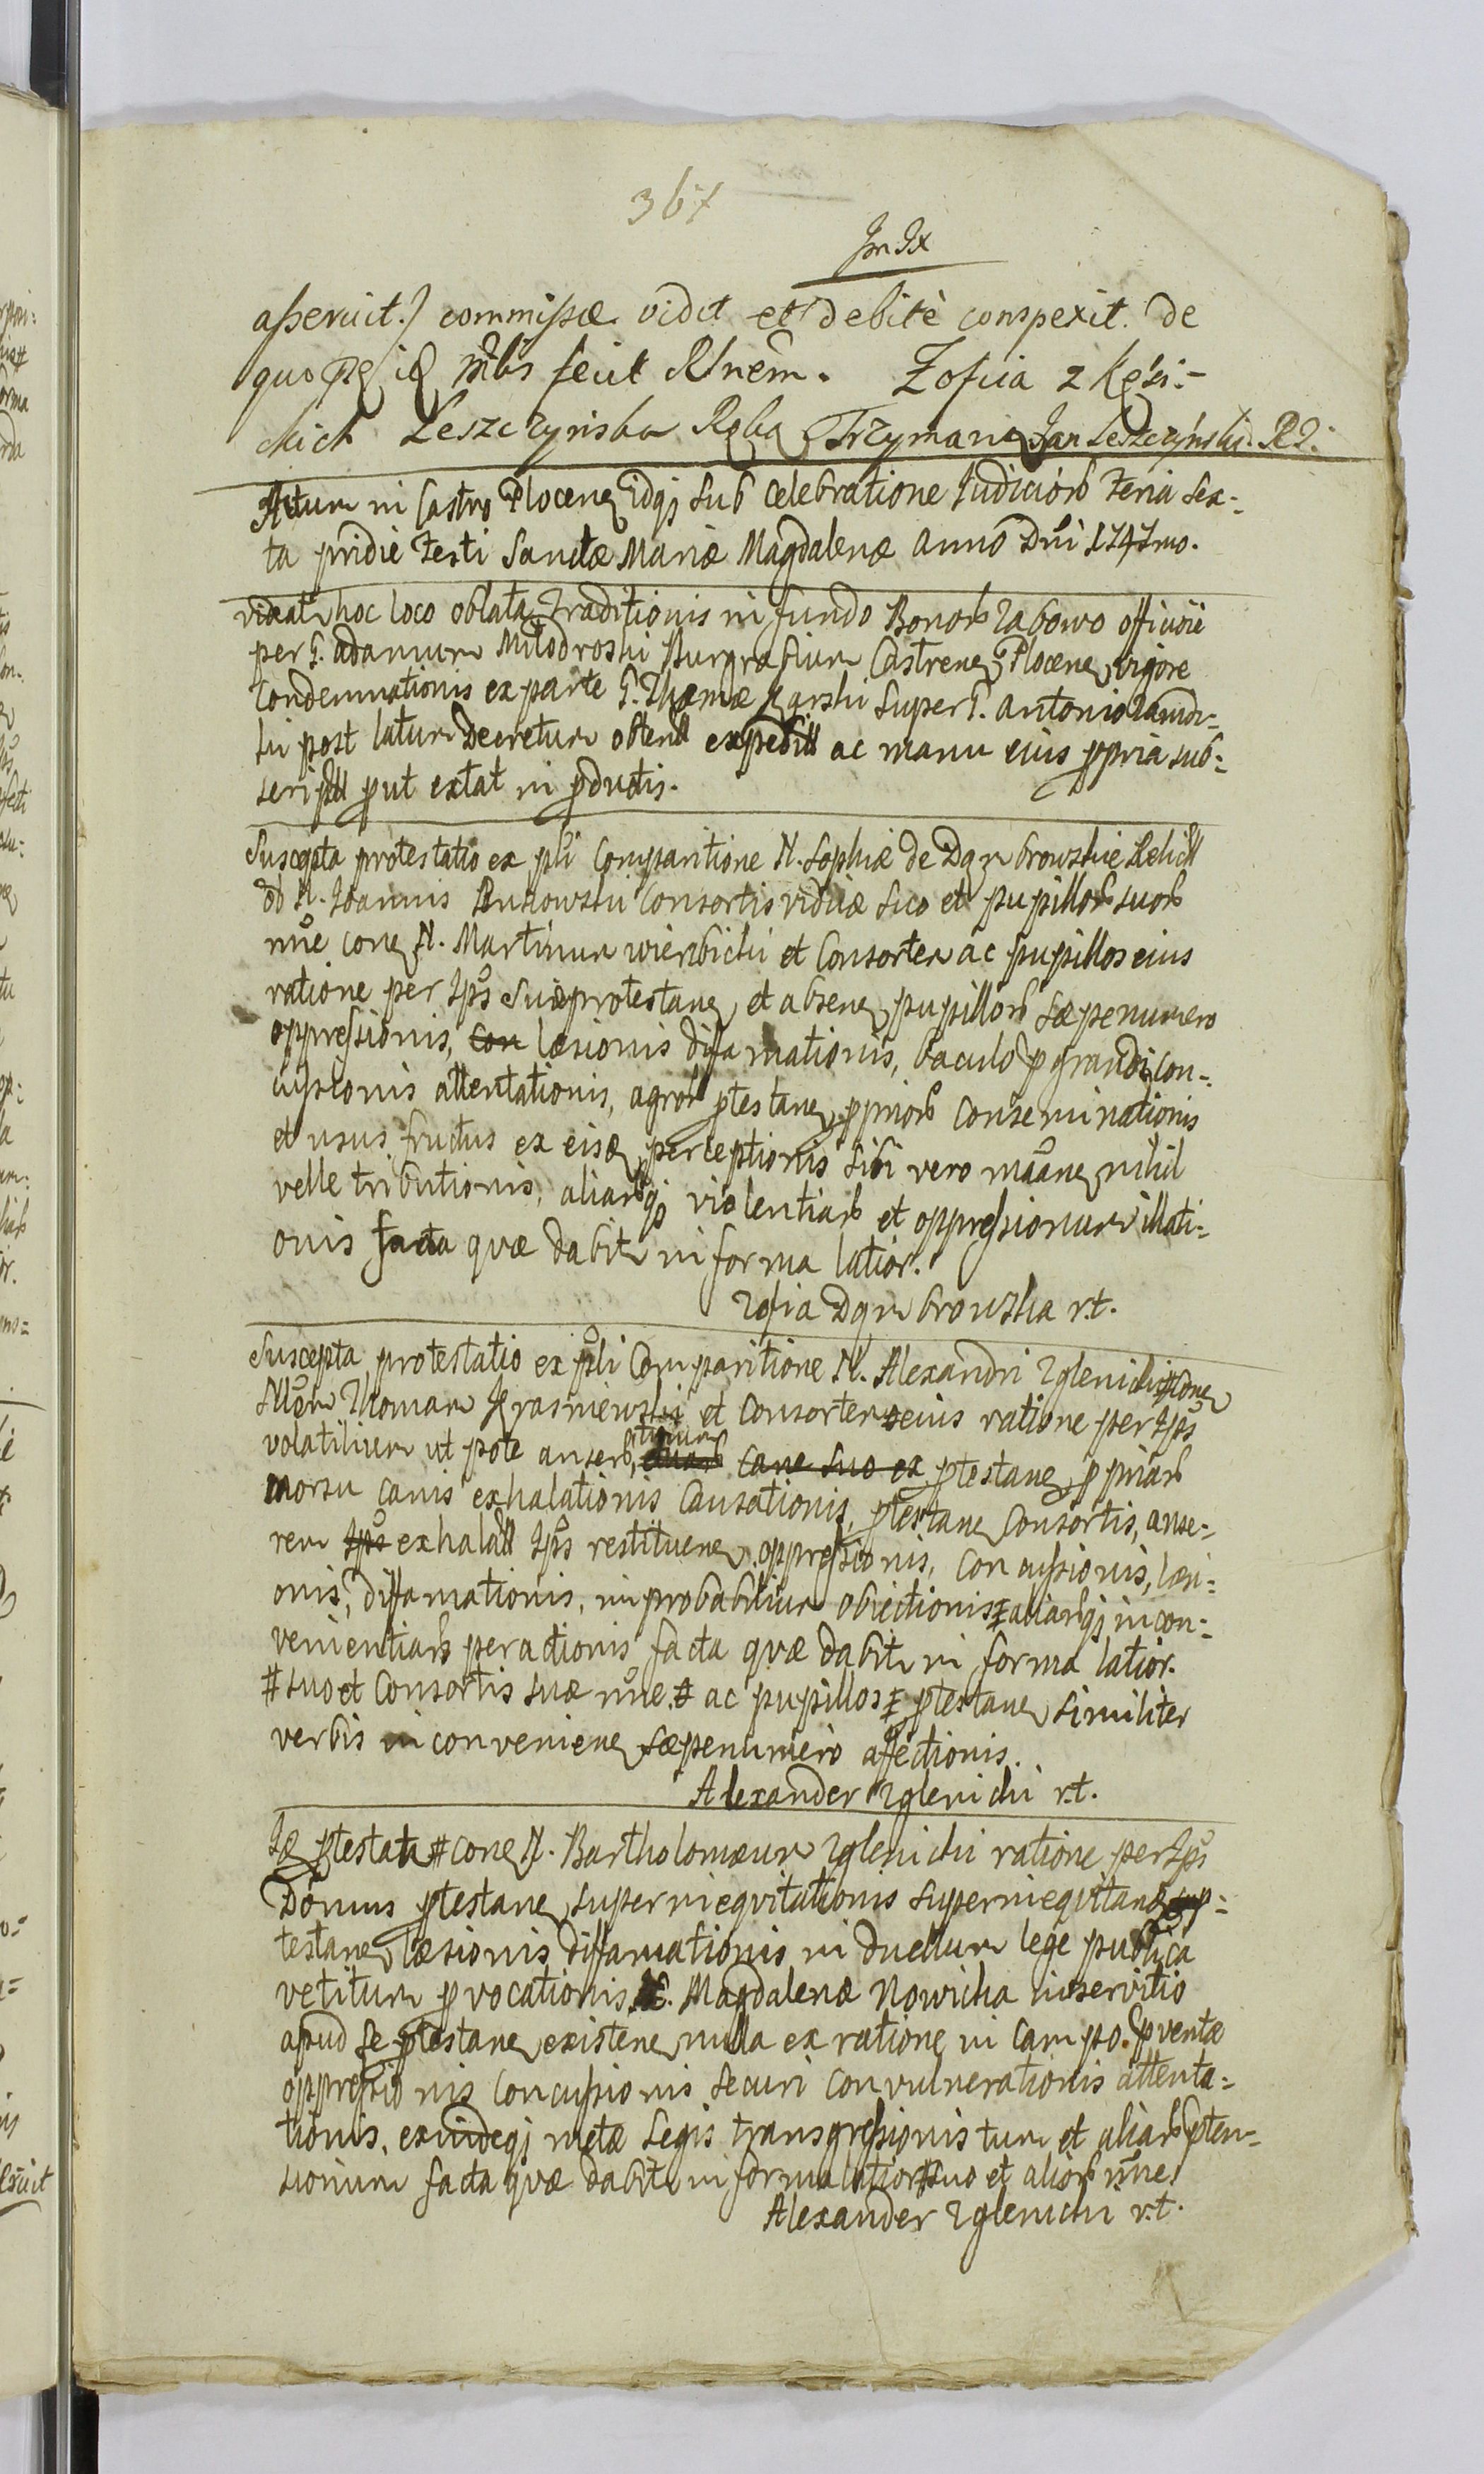 367
asseruit./ commissæ vidit et debitè conspexit. De
quo fecit Rlnem. Zofiia z Kęsi:-
ckich Leszczynska Ręką Trzymaną Jan Leszczyński. RP.
Actum in Castro Plocen idqz sub celebratione Judiciorb Feria sex:
ta pridie Festi Sanctæ Mariæ Magdalenæ Anno Dni 1747mo.
videat hoc loco oblata Traditionis in fundo Bonorb officiose
per G. Adamum Milodroski Burgrabium Castren Plocen vigore
Condemnationis ex parte G. Thomæ Karski super G. Antonio
ski post latum Decretum obtent expedit ac manu eius ppria sub:
script put extat in pductis.
Suscepta protestatio ex psli Comparitione N. Sophiæ de Dąmbrowskie Relict
N. Joannis Consortis viduæ suo et pupillorb suorb
nne con N. Martinum wierzbicki et Consortem ac pupillos eius
ratione per Ipos suæ protestan et absen pupillorb sæpenumero
oppressionis, Con læsionis diffamationis, baculo pgrandi con:
cussionis attentationis, agrorb ptestan ppriorb conseminationis
et usus fructus ex eisd perceptionis sibi vero nihil
velle tributionis, aliarbqz violentiarb et oppressionum illati:
onis facta quæ dabit in forma latior.
Zofia Dąmbrowska r.t.
Suscepta protestatio ex psli Comparitione N. Alexandri Zglenicki # con
Thomam Krasniewski et Consortem eius ratione per Ipos
volatilium ut pote anserb, cane suo ex ptestan ppriarb
morsu canis exhalationis causationis, ptestan Consortis, anse:
rem Ipos exhalatt Ipos restituen oppressionis, concussionis, læsi:
onis, diffamationis, improbabilium obiectionis ‡ aliarbqz incon:
venientiarb peractionis facta quæ dabit in forma latior.
# suo et Consortis suæ nne. # ac pupillos ‡ ptestan similiter
verbis inconvenien sæpenumero affectionis.
Alexander Zglenicki r.t.
Id ptestata # con N. Bartholomæum Zglenicki ratione per Ipos
Domus ptestan superinequitationis superinequitand p:
testan læsionis diffamationis in duellum lege publica
vetitum pvocationis N. Magdalenæ Nowicka inservitio
apud se ptestan existen nulla ex ratione in campo pventæ
oppressionis concussionis securi convulnerationis attenta:
tionis, exindeqz metæ legis transgressionis tum et aliarb pten:
sionum facta quæ dabit in forma latior # suo et aliorb nne.
Alexander Zglenicki r.t.